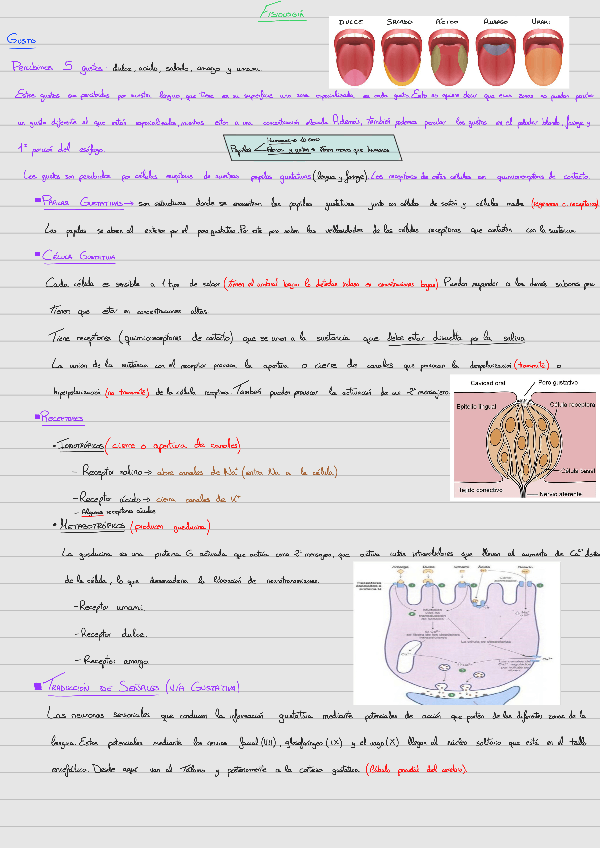 FISIOLOGÍA
DULCE SALADO ÁCIDO AMARGO UMAMI
GUSTO
Percibimos 5 gustos: dulce, ácido, salado, amargo y umami.
Estos gustos son percibidos por nuestra lengua, que tiene en su superficie una zona especializada en cada gusto. Esto no quiere decir que esas zonas no puedan percibir
un gusto diferente al que están especializadas, mientras estén a una concentración elevada. Además, también podemos percibir los gustos en el paladar blando, faringe y
1ª porción del esófago.
Humanos → 10.000
Papilas
Perros y gatos → tienen menos que humanos
Los gustos son percibidos por células receptoras de nuestras papilas gustativas (lengua y faringe). Los receptores de estas células son quimiorreceptores de contacto.
PAPILAS GUSTATIVAS → son estructuras donde se encuentran las papilas gustativas junto con células de sostén y células madre (regeneran c. receptoras)
Las papilas se abren al exterior por el poro gustativo. Por este poro salen las vellosidades de las células receptoras que contactan con la sustancia.
CÉLULA GUSTATIVA
Cada célula es sensible a 1 tipo de sabor (tienen el umbral bajo: lo detectan incluso en concentraciones bajas). Pueden responder a los demás sabores pero
tienen que estar en concentraciones altas.
Tiene receptores (quimiorreceptores de contacto) que se unen a la sustancia que debe estar disuelta por la saliva.
La unión de la sustancia con el receptor provoca la apertura o cierre de canales que provocan la despolarización (transmite) o
hiperpolarización (no transmite) de la célula receptora. También pueden provocar la activación de un 2º mensajero.
Cavidad oral Poro gustativo
Epitelio lingual Célula receptora
Célula basal
Tejido conectivo Nervio aferente
RECEPTORES
IONOTRÓPICOS (cierre o apertura de canales)
- Receptor salino → abre canales de Na⁺ (entra Na a la célula)
- Receptor ácido → cierra canales de K⁺
- Algunos receptores ácidos
METABOTRÓPICOS (producen gusducina)
La gusducina es una proteína G activada que actúa como 2º mensajero, que activa rutas intracelulares que llevan al aumento de Ca²⁺ dentro
de la célula, lo que desencadena la liberación de neurotransmisores.
- Receptor umami.
- Receptor dulce.
- Receptor amargo
Amargo Dulce Umami Ácido
TRADUCCIÓN DE SEÑALES (VÍA GUSTATIVA)
Las neuronas sensoriales que conducen la información gustativa mediante potenciales de acción que parten de las diferentes zonas de la
lengua. Estos potenciales mediante los nervios facial (VII), glosofaríngeo (IX) y el vago (X) llegan al núcleo solitario que está en el tallo
encefálico. Desde aquí van al Tálamo y posteriormente a la corteza gustativa (lóbulo parietal del cerebro).